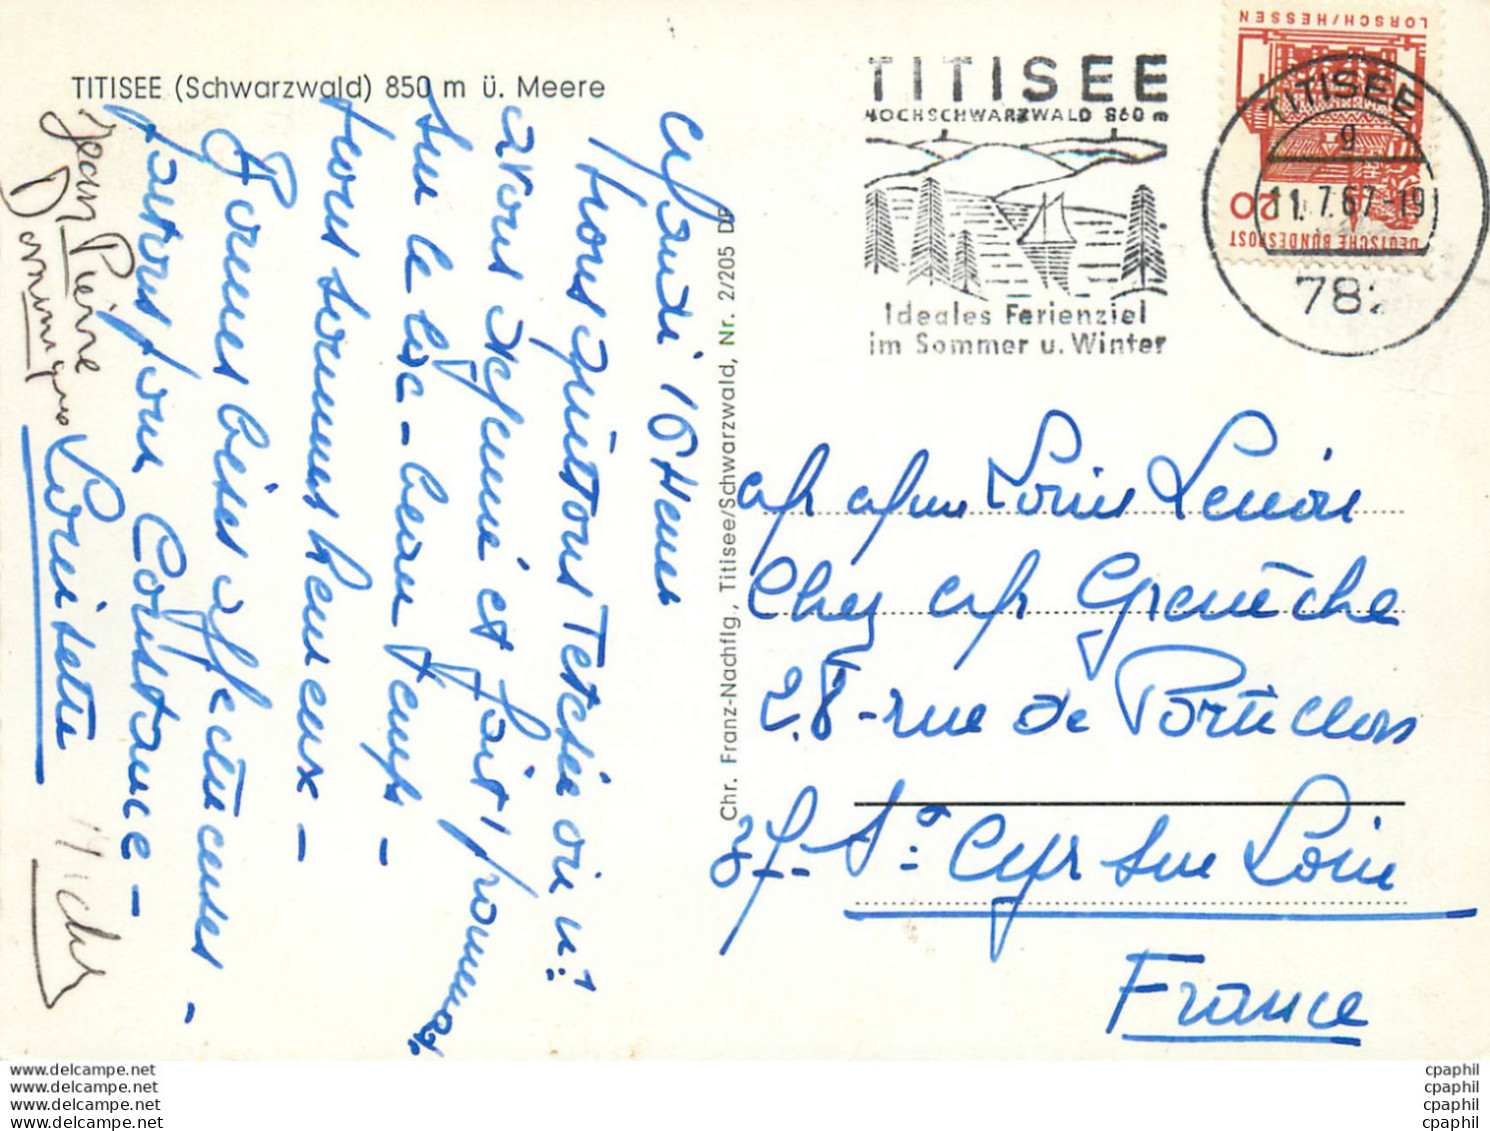 TITISEE (Schwarzwald) 850 m ü. Meere
Mardi 16 Heures
Nous quittons Titisée où n:
avons déjeuné et fait 1 promenade
sur le lac - beau temps -
tous sommes heureux -
Bonnes bises affectueuses -
partons pour Constance -
Louisette
Jean Pierre
Dominique
Michel
Chr. Franz-Nachflg., Titisee/Schwarzwald, Nr. 2/205 DF
TITISEE
HOCHSCHWARZWALD 860 m
Ideales Ferienziel
im Sommer u. Winter
LORSCH/HESSEN
20
DEUTSCHE BUNDESPOST
TITISEE
g
11.7.67-19
782
Mr Mme Louis Lenoir
Chez Mr Grenèche
28 - rue de Portillon
37 - St: Cyr sur Loire
France
www.delcampe.net
www.delcampe.net
www.delcampe.net
www.delcampe.net
cpaphil
cpaphil
cpaphil
cpaphil